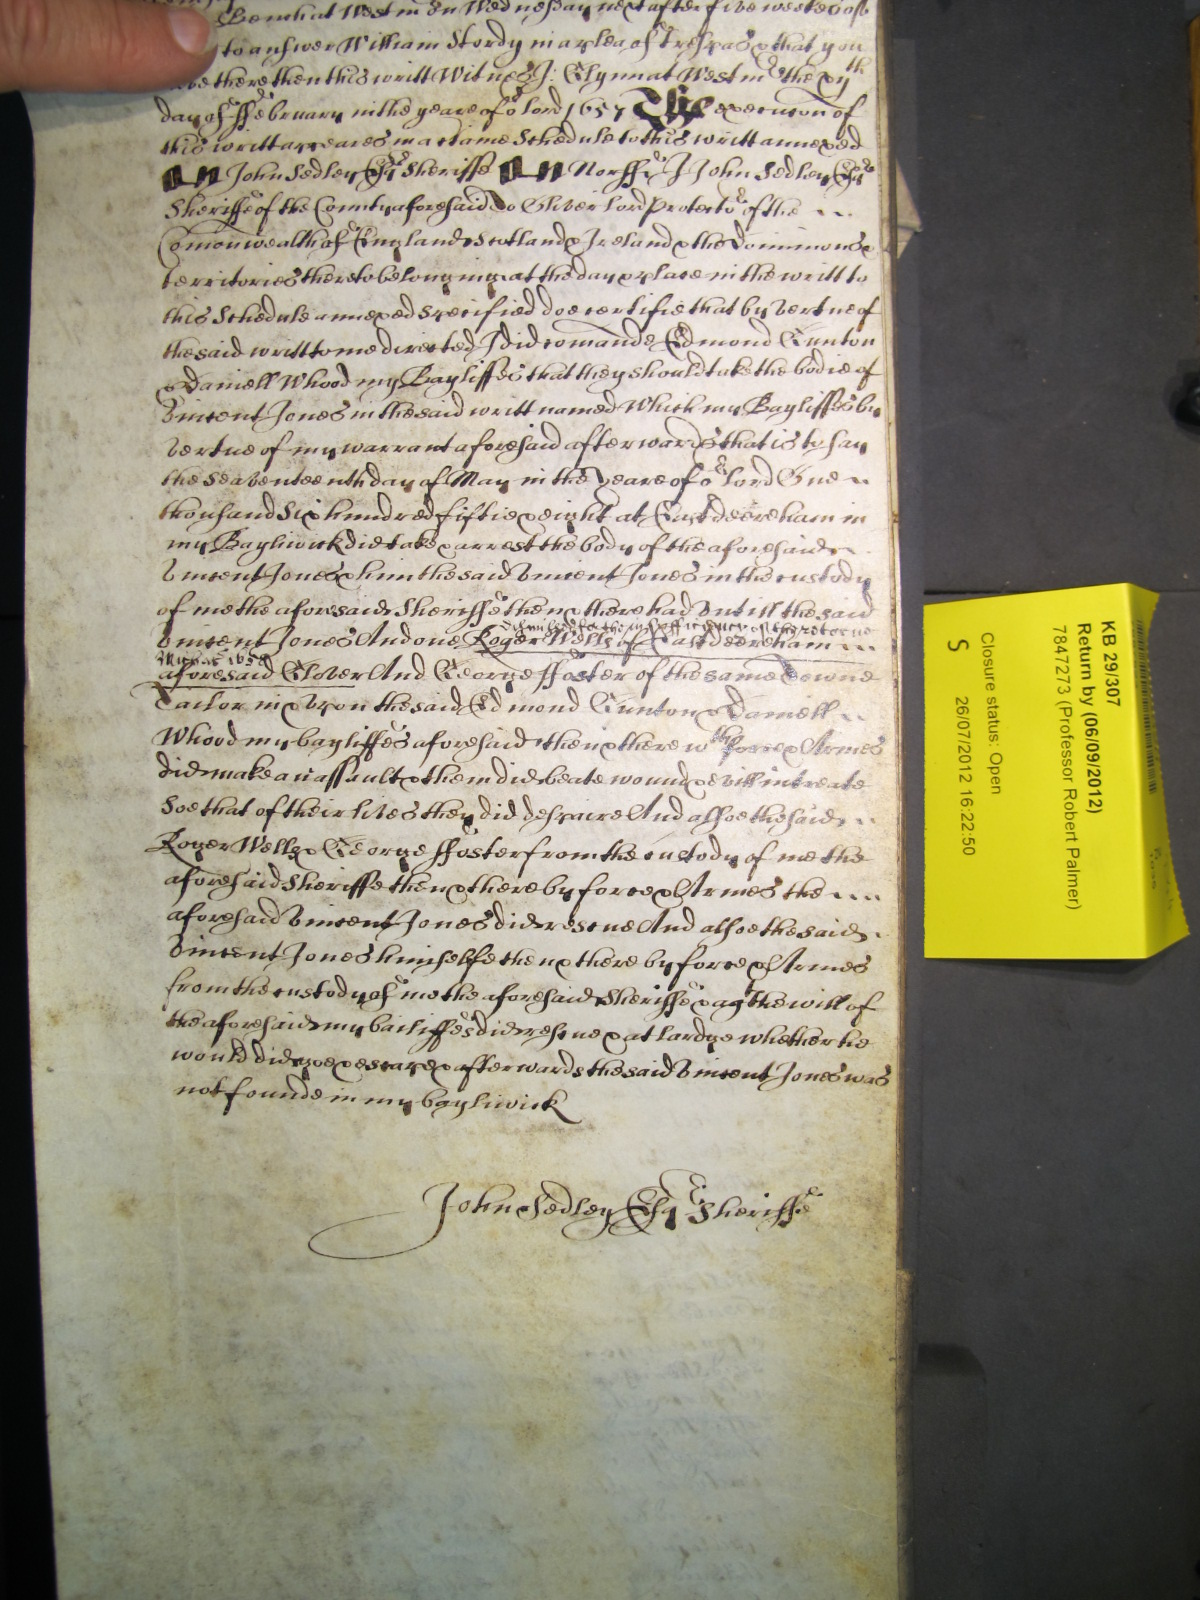 Bench at Westm̄ On Wednesday next after five weekes of
to answer William Stordy in a plea of Trespas & that you
there then this writt Witnes J: Glynn at Westm̄ the xvth
day of ffebruary in the yeare of oʳ lord 1657 The execucon of
this writt appeares in a certaine Schedule to this writt annexed
John Sedley Esqʳ Sheriffe Norff I John Sedley Esqʳ
Sheriffe of the County aforesaid To Oliver lord Protectoʳ of the
Comonwealth of England Scotland & Ireland & the Dominions &
territories thereto belonging at the day & place in the writt to
this Schedule annexed specified doe certifie that by vertue of
the said writt to me directed I did comande Edmond Gunton
& Daniell Whood my Bayliffes that they should take the bodie of
Vincent Jones in the said writt named Which my Bayliffes by
vertue of my warrant aforesaid afterwards that is to say
the seaventeenth day of May in the yeare of oʳ lord One
thousand six hundred fiftie & eight at East deereham in
my Bayliwick did take & arrest the body of the aforesaid
Vincent Jones & him the said Vincent Jones in the custody
of me the aforesaid Sheriffe then & there had Untill the said
for the insufficiency of the retorne
Vincent Jones And one Roger Wells of East deereham
Mich'is 1658
aforesaid Glover And George ffoster of the same Towne
Tailor in & upon the said Edmond Gunton & Daniell
Whood my bayliffes aforesaid then & there wᵗʰ force & Armes
did make an assault & them did beate wound & evill intreate
Soe that of their lives they did despaire And alsoe the said
Roger Wells & George ffoster from the custody of me the
aforesaid Sheriffe then & there by force & Armes the
aforesaid Vincent Jones did rescue And alsoe the said
Vincent Jones himselfe then & there by force & Armes
from the custody of me the aforesaid Sheriffe & agᵗ the will of
the aforesaid my bailiffes did rescue & at lardge whether he
would did goe & escape & afterwards the said Vincent Jones was
not founde in my bayliwick
John Sedley Esqʳ Sheriffe
KB 29/307
Return by (06/09/2012)
7847273 (Professor Robert Palmer)
Closure status: Open
S 26/07/2012 16:22:50